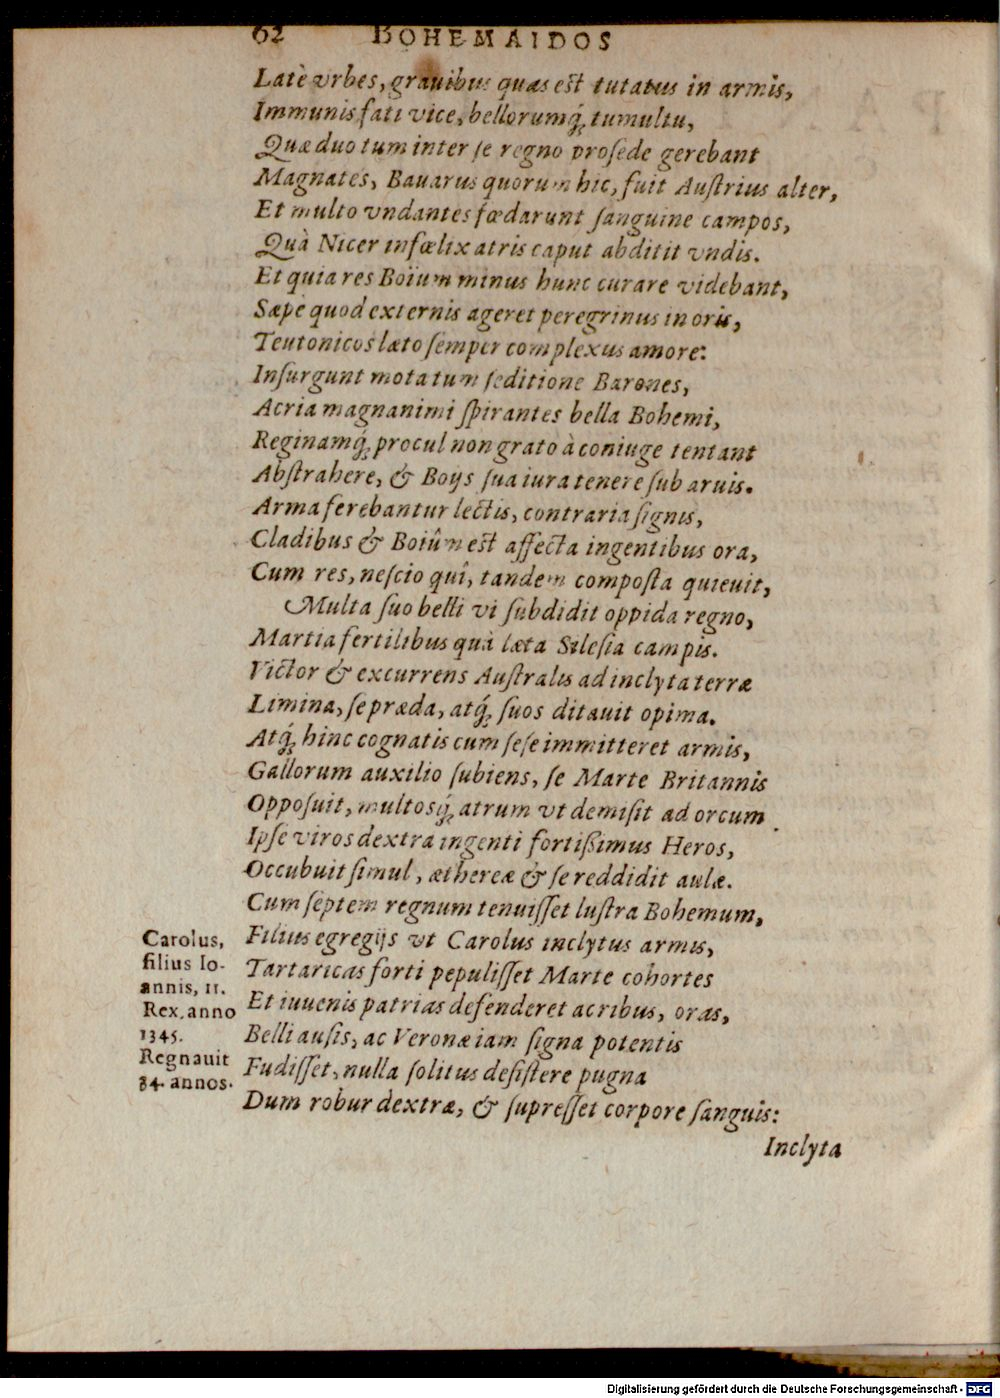 62 BOHEMAIDOS
Latè vrbes, grauibus quas est tutatus in armis,
Immunis fati vice, bellorumq́; tumultu,
Quæ duo tum inter se regno pro sede gerebant
Magnates, Bauarus quorum hic, fuit Austrius alter,
Et multo vndantes fœdarunt sanguine campos,
Quà Nicer infœlix atris caput abditit vndis.
Et quia res Boïum minus hunc curare videbant,
Sæpè quod externis ageret peregrinus in oris,
Teutonicos læto semper complexus amore:
Insurgunt mota tum seditione Barones,
Acria magnanimi spirantes bella Bohemi,
Reginamq́; procul non grato à coniuge tentant
Abstrahere, & Boijs sua iura tenere sub aruis.
Arma ferebantur lectis, contraria signis,
Cladibus & Boiûm est affecta ingentibus ora,
Cum res, nescio quî, tandem composta quieuit,
Multa suo belli vi subdidit oppida regno,
Martia fertilibus quà læta Silesia campis.
Victor & excurrens Australis ad inclyta terræ
Limina, se præda, atq́; suos ditauit opima.
Atq́; hinc cognatis cum sese immitteret armis,
Gallorum auxilio subiens, se Marte Britannis
Opposuit, multosq́; atrum vt demisit ad orcum
Ipse viros dextra ingenti fortißimus Heros,
Occubuit simul, æthereæ & se reddidit aulæ.
Cum septem regnum tenuisset lustra Bohemum,
Carolus,
filius Io-
annis, 11.
Rex. anno
1345.
Regnauit
34. annos.
Filius egregijs vt Carolus inclytus armis,
Tartaricas forti pepulisset Marte cohortes
Et iuuenis patrias defenderet acribus, oras,
Belli ausis, ac Veronæ iam signa potentis
Fudisset, nulla solitus desistere pugna
Dum robur dextræ, & supresset corpore sanguis:
Inclyta
Digitalisierung gefördert durch die Deutsche Forschungsgemeinschaft - DFG